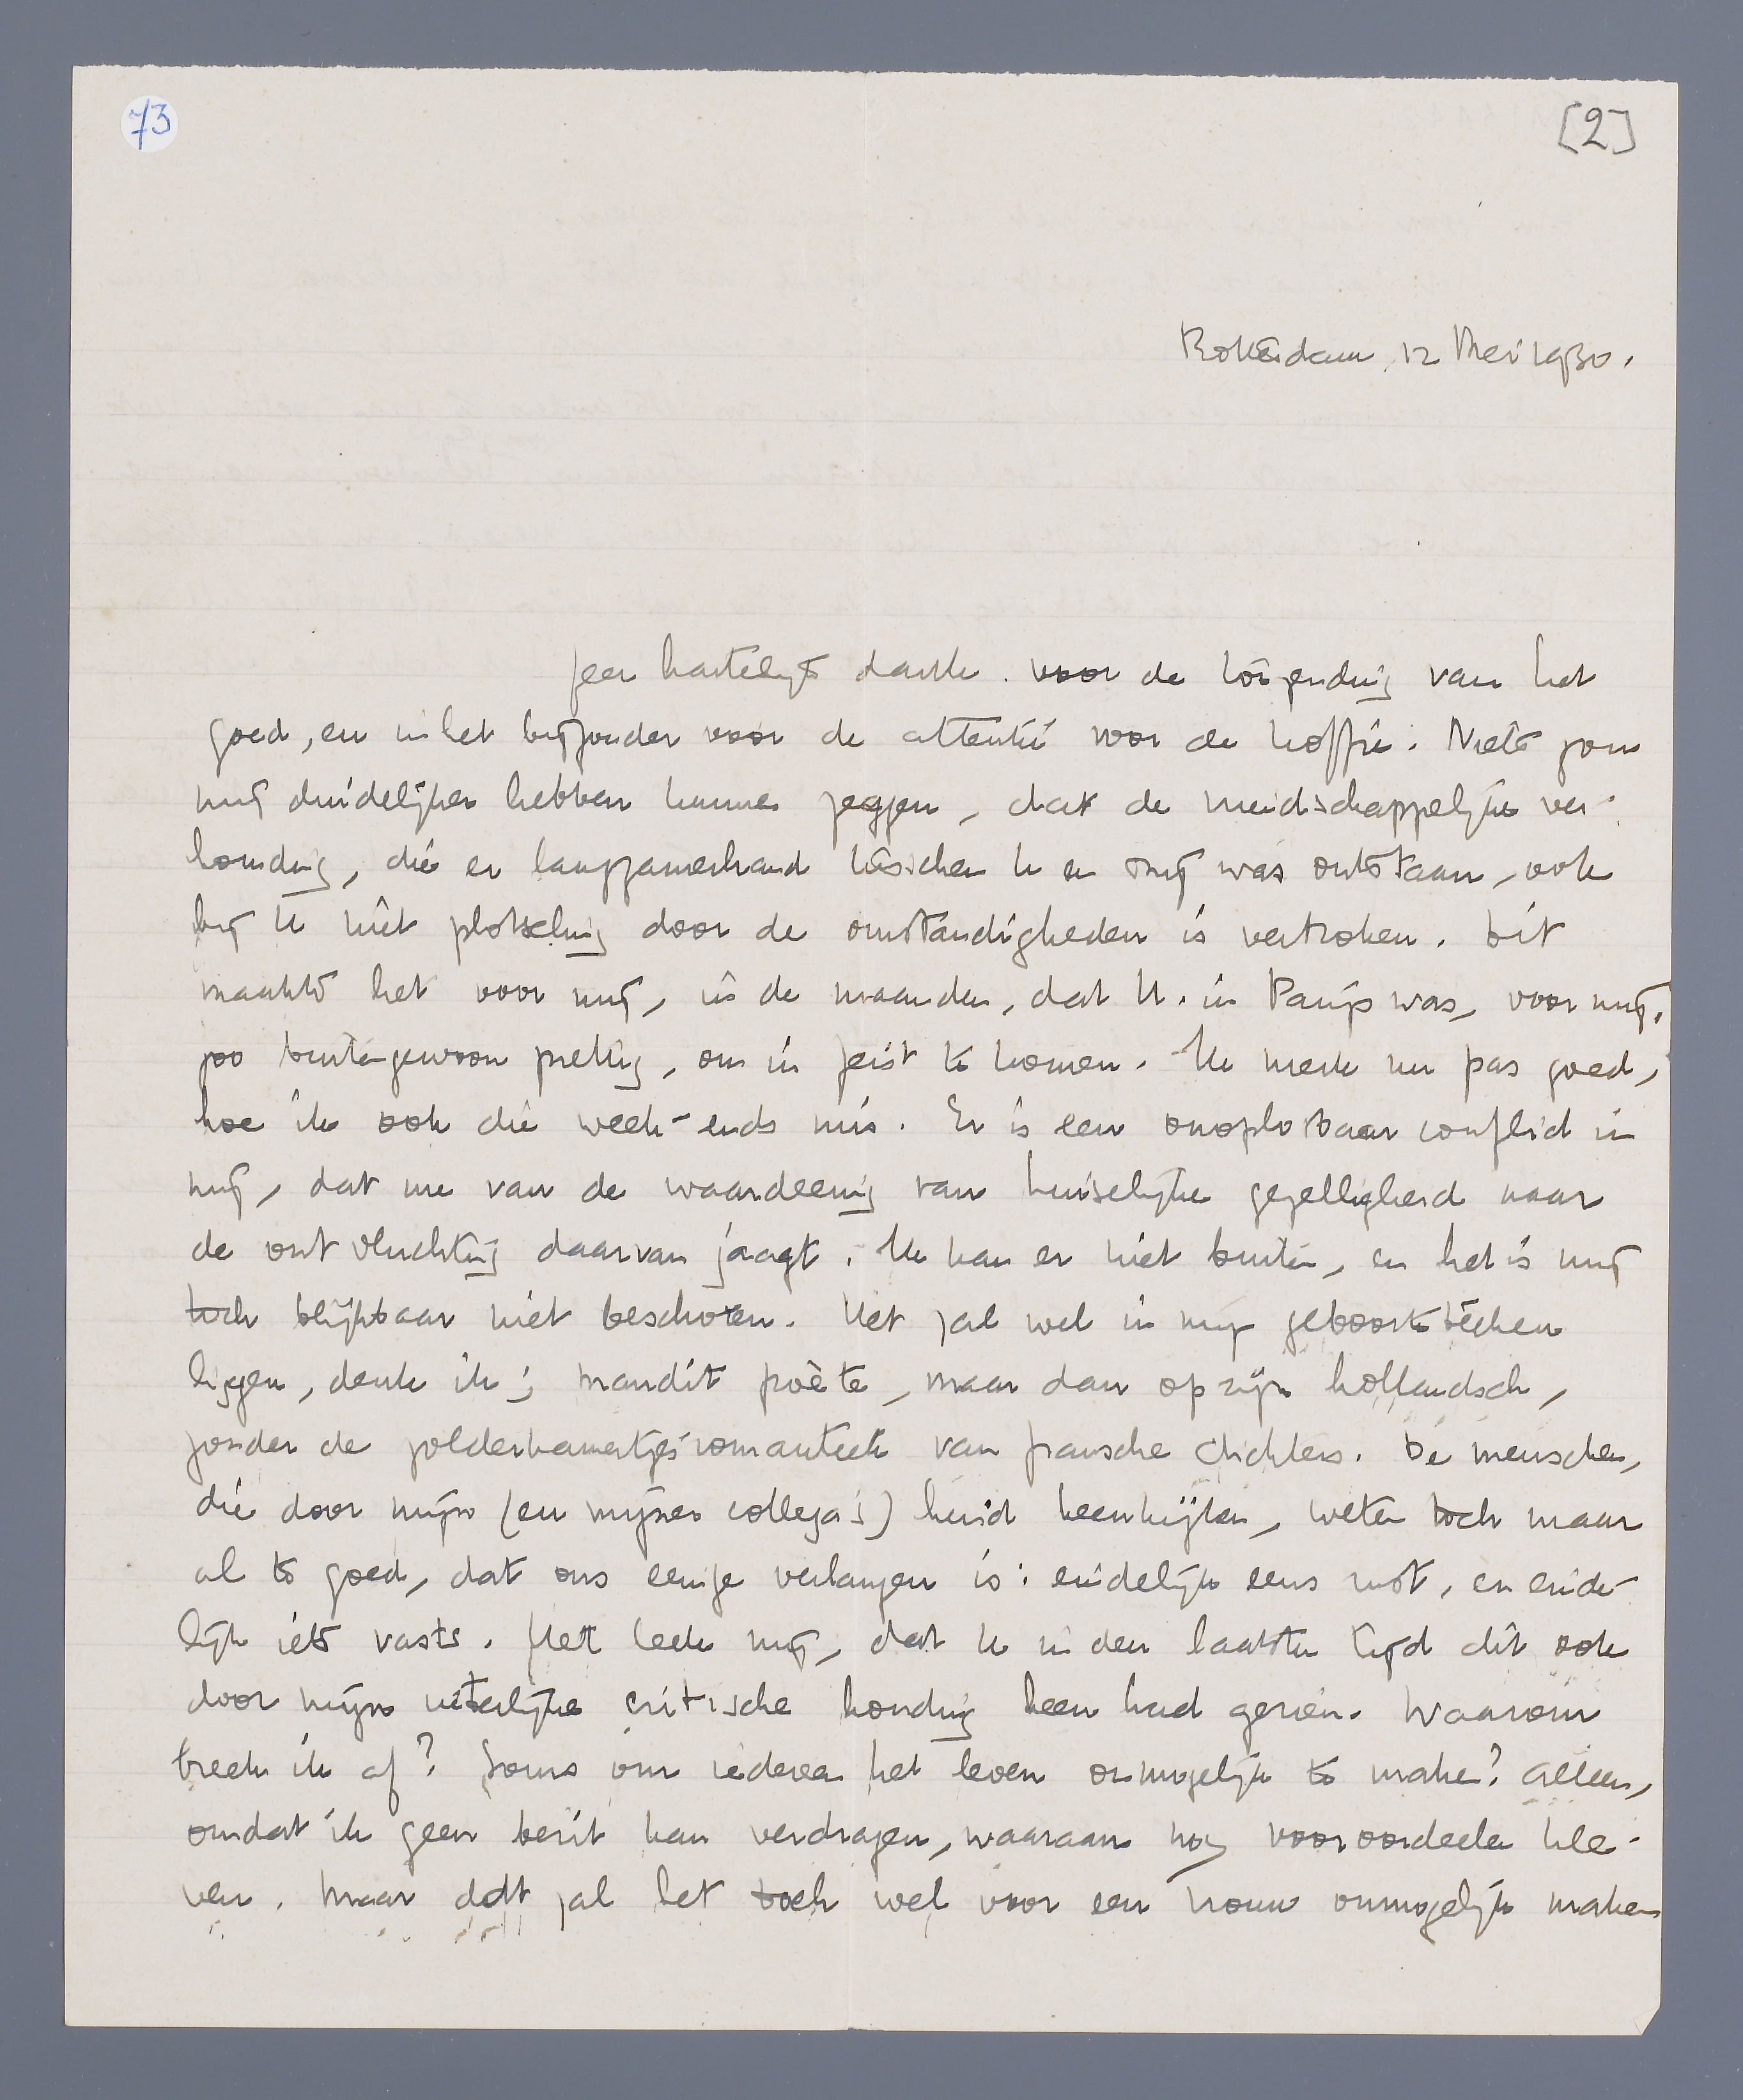 73
[2]
Rotterdam, 12 Mei 1930.
Zeer hartelijk dank voor de toezending van het
goed, en in het bijzonder voor de attentie voor de koffie. Niets zou
mij duidelijker hebben kunnen zeggen, dat de vriendschappelijke ver-
houding, die er langzamerhand tusschen U en mij was ontstaan, ook
bij U niet plotseling door de omstandigheden is vertroken. Dit
maakte het voor mij, in de maanden, dat U. in Parijs was, voor mij,
zoo buitengewoon prettig, om in Zeist te komen. Ik merk nu pas goed,
hoe ik ook die week-ends mis. Er is een onoplosbaar conflict in
mij, dat me van de waardeering van huiselijke gezelligheid naar
de ontvluchting daarvan jaagt. Ik kan er niet buiten, en het is mij
toch blijkbaar niet beschoren. Het zal wel in mijn geboorteteeken
liggen, denk ik; maudit poète, maar dan op zijn hollandsch,
zonder de zolderkamertjesromantiek van fransche dichters. De menschen,
die door mijn (en mijner collega's) huid heenkijken, weten toch maar
al te goed, dat ons eenige verlangen is: eindelijk eens rust, en einde-
lijk iets vasts. Het leek mij, dat U in den laatsten tijd dit ook
door mijn uiterlijke critische houding heen had gezien. Waarom
breek ik af? Soms om iedereen het leven onmogelijk te maken? Alleen,
omdat ik geen bezit kan verdragen, waaraan nog vooroordeelen kle-
ven. Maar dat zal het toch wel voor een vrouw onmogelijk maken